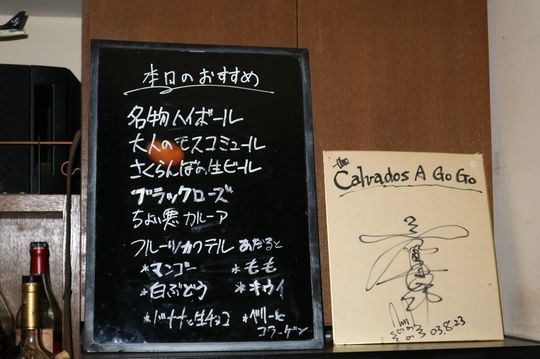 本日のおすすめ
名物ハイボール
大人のモスコミュール
さくらんぼの生ビール
ブラックローズ
ちょい悪カルーア
フルーツカクテル あたると
*マンゴー *もも
*白ぶどう *キウイ
*バナナと生チョコ *ベリーと
コラーゲン
The
Calvados A Go Go
03.8.23